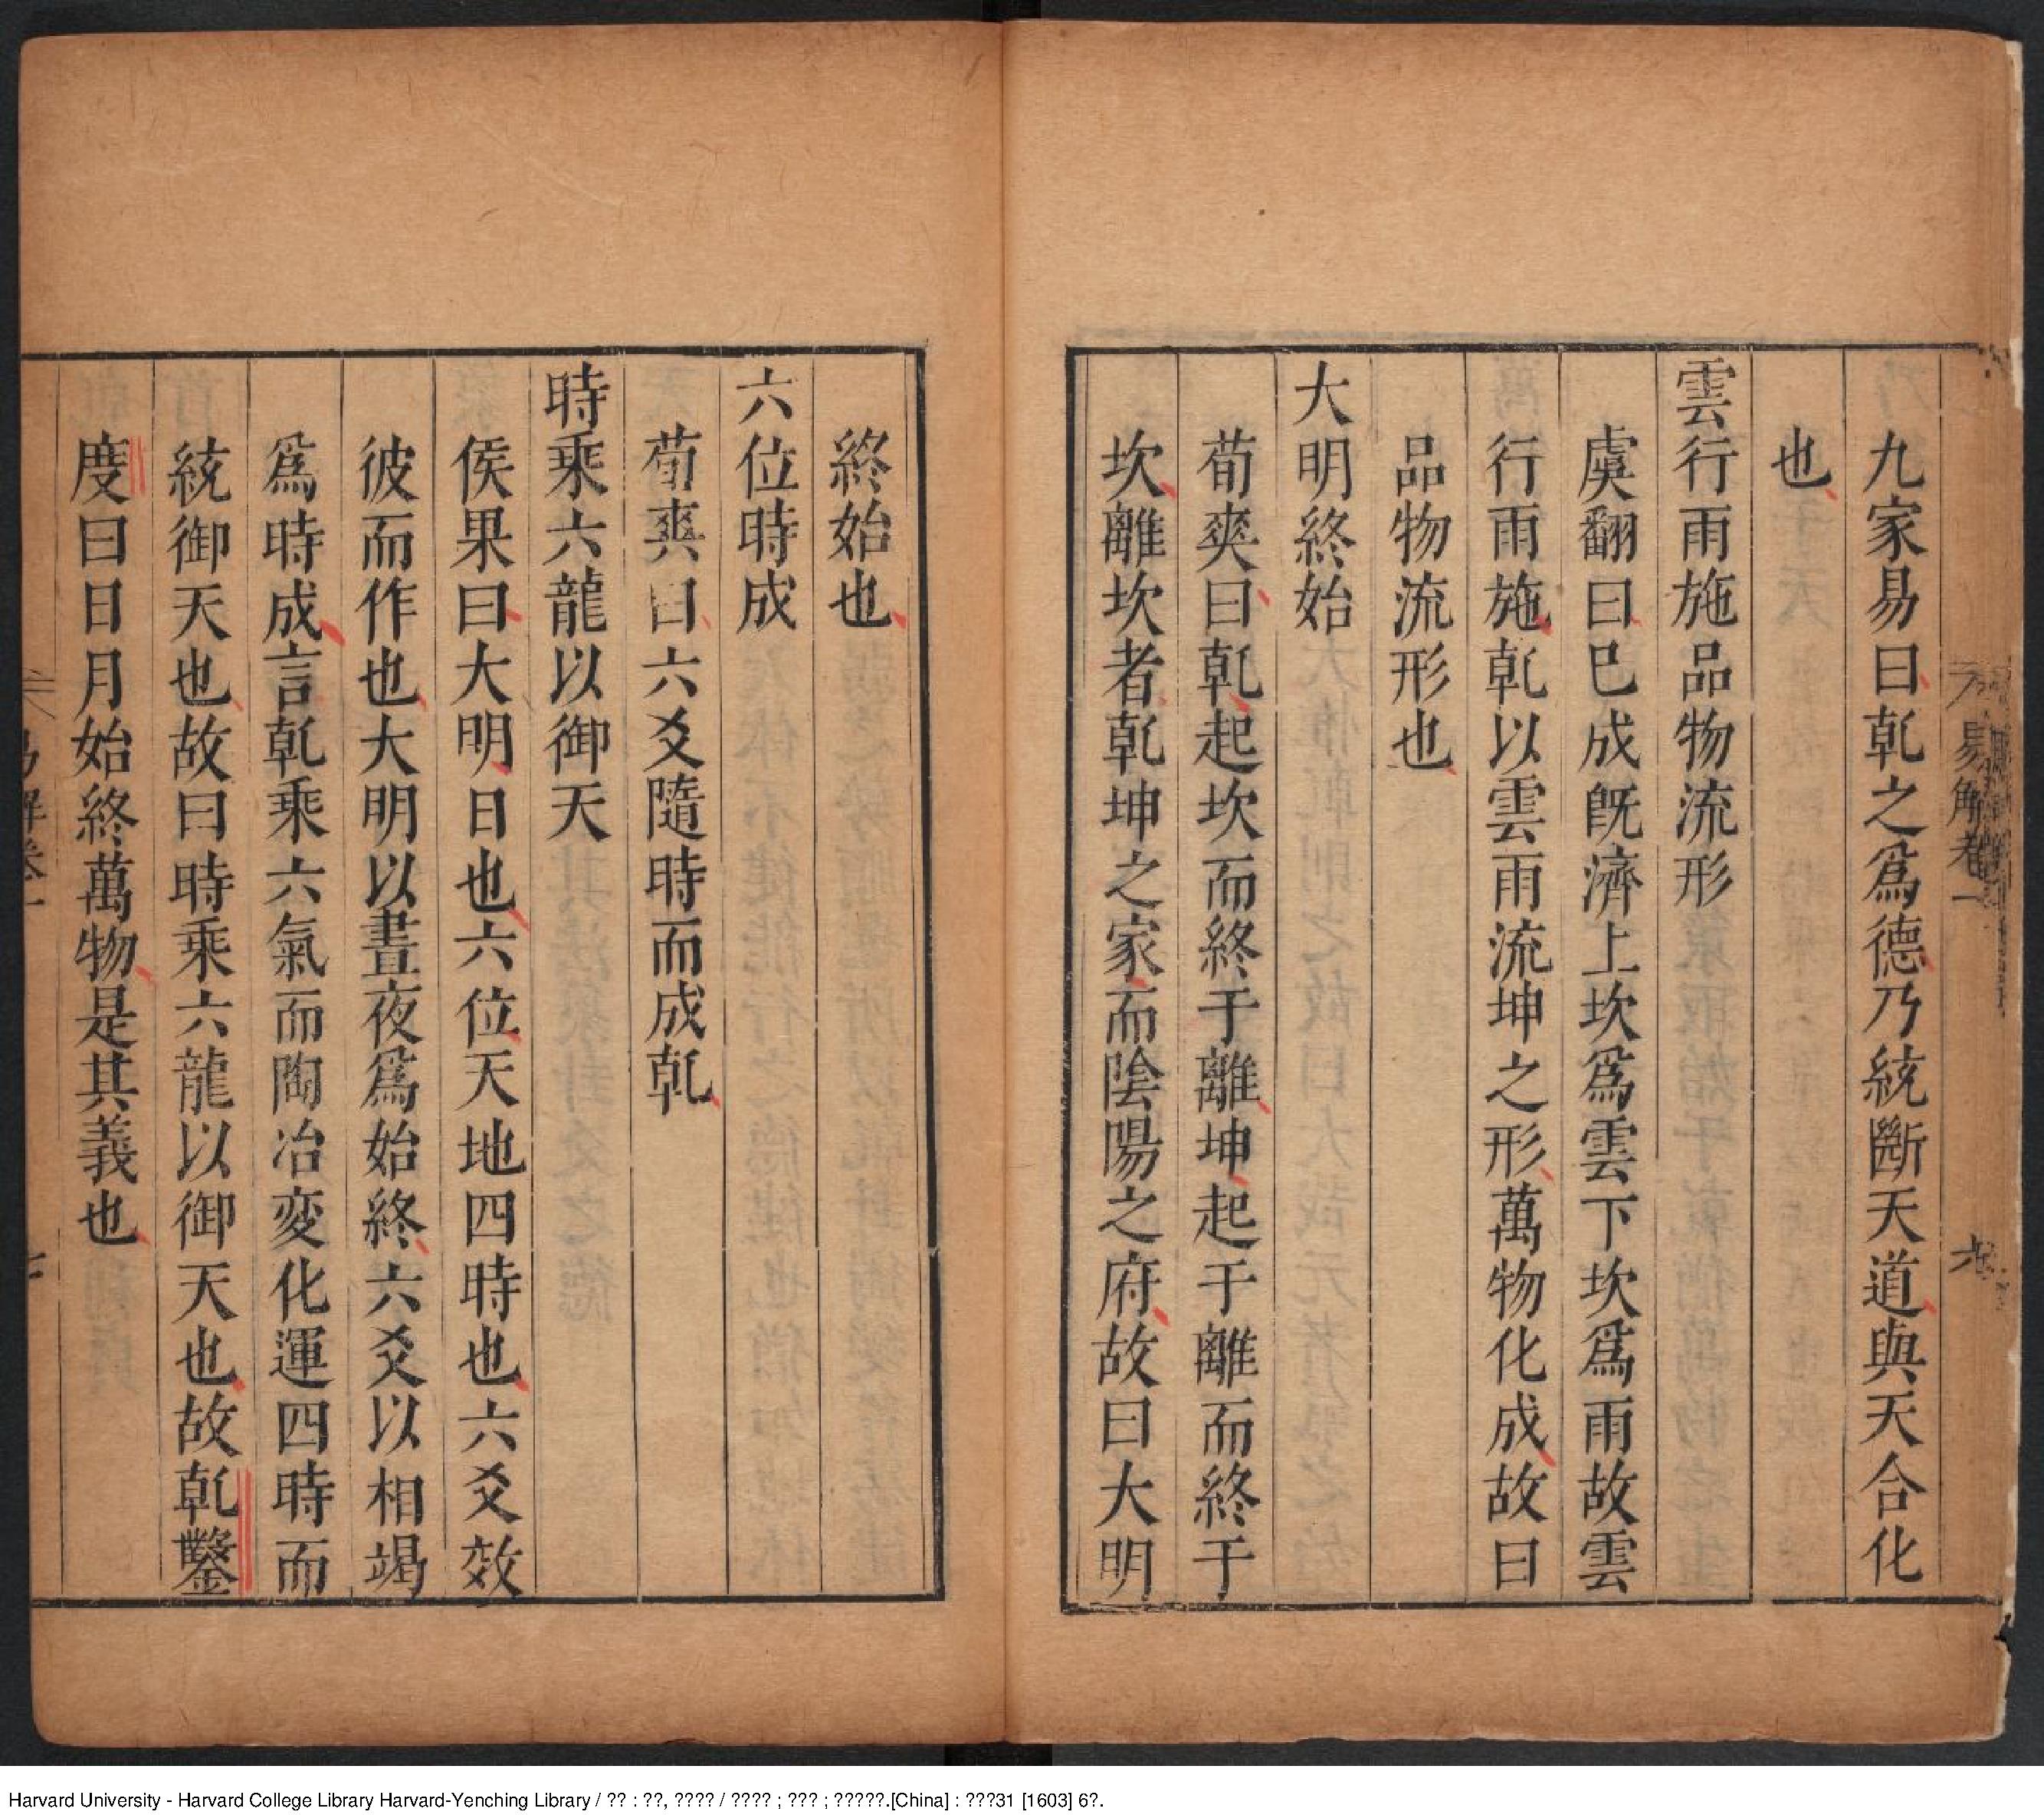 易解卷一
六
九家易曰乾之爲德乃統斷天道與天合化
也
雲行雨施品物流形
虞翻曰已成旣濟上坎爲雲下坎爲雨故雲
行雨施乾以雲雨流坤之形萬物化成故曰
品物流形也
大明終始
荀爽曰乾起坎而終于離坤起于離而終于
坎離坎者乾坤之家而陰陽之府故曰大明
終始也
六位時成
荀爽曰六爻隨時而成乾
時乘六龍以御天
侯果曰大明日也六位天地四時也六爻效
彼而作也大明以晝夜爲始終六爻以相竭
爲時成言乾乘六氣而陶冶変化運四時而
統御天也故曰時乘六龍以御天也故乾鑿
度曰日月始終萬物是其義也
Harvard University - Harvard College Library Harvard-Yenching Library / ?? : ??, ???? / ???? ; ??? ; ?????.[China] : ???31 [1603] 6?.